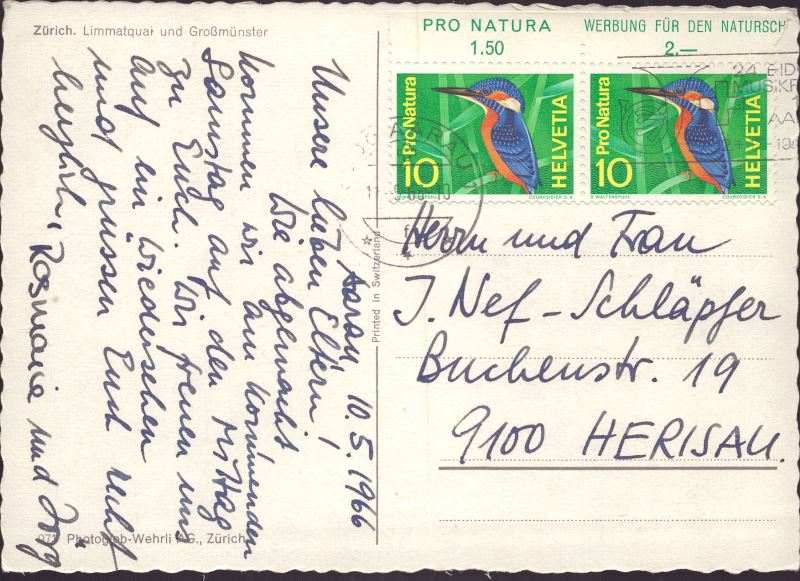 Zürich. Limmatquai und Großmünster
Aarau 10.5.1966
Unsere lieben Eltern!
Wie abgemacht
kommen wir am kommenden
Samstag auf den Mittag
zu Euch. Wir freuen uns
auf ein Wiedersehen
und grüssen Euch recht
herzlich, Rosmarie und Jörg
971 Photoglob-Wehrli AG., Zürich
Printed in Switzerland
PRO NATURA
1.50
WERBUNG FÜR DEN NATURSCH
2.—
Pro Natura
10
HELVETIA
H. WALTENSPÜHL COURVOISIER S.A.
Pro Natura
10
HELVETIA
H. WALTENSPÜHL COURVOISIER S.A.
AARAU
24. EID
MUSIK
AA
Herrn und Frau
J. Nef-Schläpfer
Buchenstr. 19
9100 HERISAU